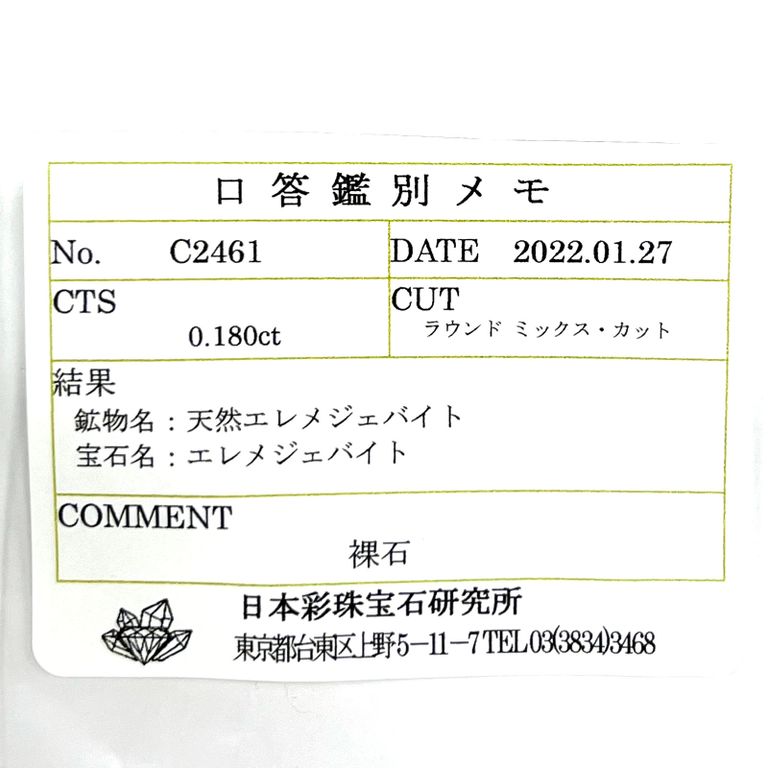 口答鑑別メモ
No. C2461 DATE 2022.01.27
CTS CUT
0.180ct ラウンド ミックス・カット
結果
鉱物名：天然エレメジェバイト
宝石名：エレメジェバイト
COMMENT
裸石
日本彩珠宝石研究所
東京都台東区上野5－11－7 TEL 03(3834)3468